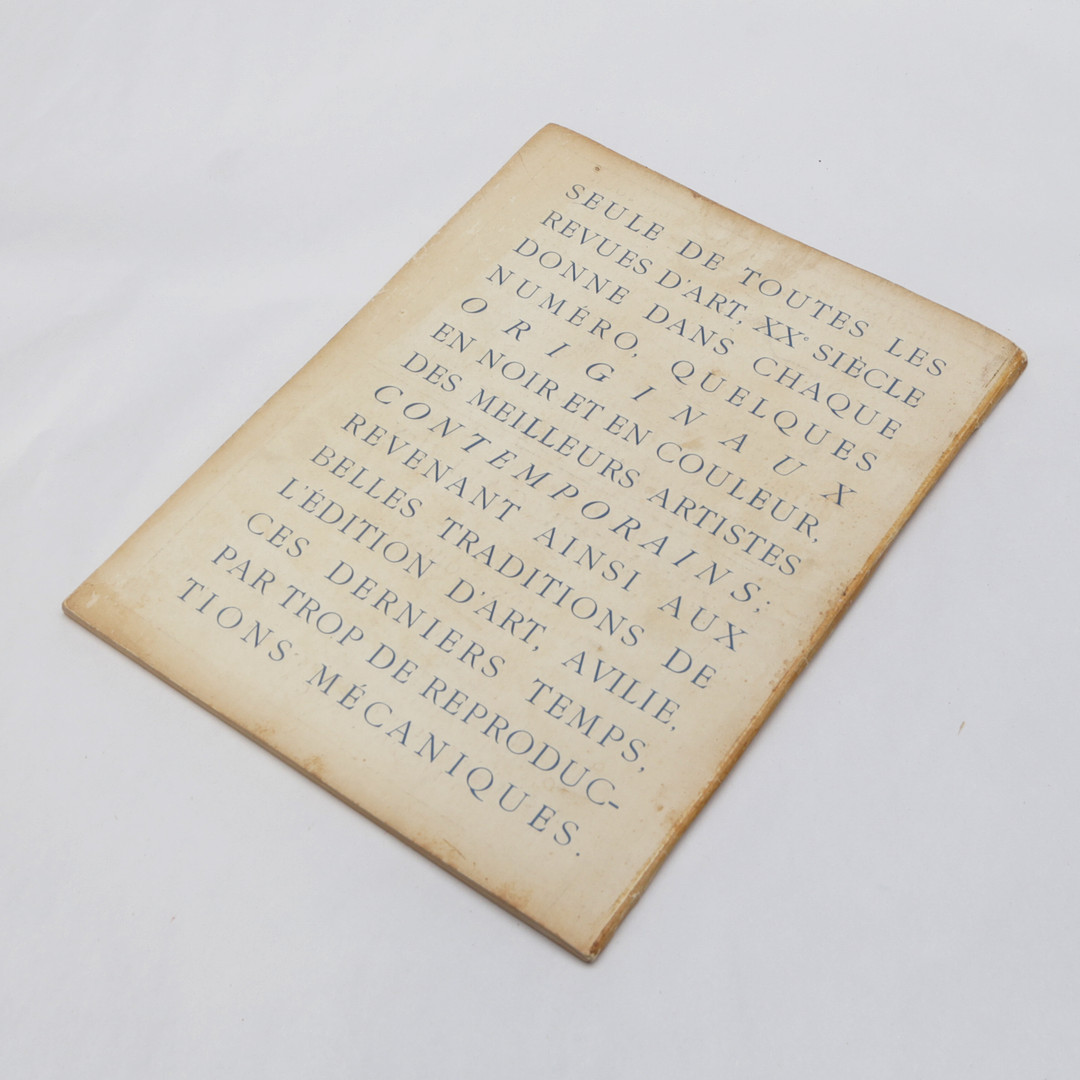 SEULE DE TOUTES LES
REVUES D'ART, XXe SIÈCLE
DONNE DANS CHAQUE
NUMÉRO, QUELQUES
ORIGINAUX
EN NOIR ET EN COULEUR,
DES MEILLEURS ARTISTES
CONTEMPORAINS;
REVENANT AINSI AUX
BELLES TRADITIONS DE
L'ÉDITION D'ART, AVILIE,
CES DERNIERS TEMPS,
PAR TROP DE REPRODUC-
TIONS MÉCANIQUES.